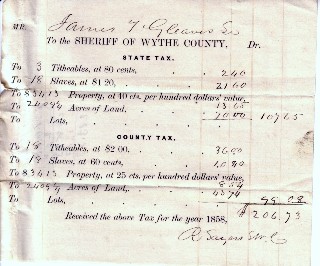 MR. James T. Gleaves Sr
To the SHERIFF OF WYTHE COUNTY, Dr.
STATE TAX.
To 3 Titheables, at 80 cents, 240
To 18 Slaves, at $1 20. 2160
To $3413 Property, at 40 cts. per hundred dollars' value, 13.65
To Acres of Land,
To Lots,
COUNTY TAX.
To 18 Titheables, at $2 00. 3600
To 18 Slaves, at 60 cents, 1080
To $3413 Property, at 25 cts. per hundred dollars' value, 8.54
To Acres of Land,
To Lots, 99.08
Received the above Tax for the year 1858, $206.73